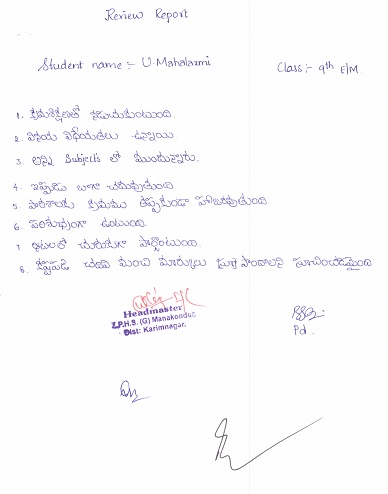 Review Report
Student name :- U. Mahalaxmi
Class :- 9th E/M
1. క్రమశిక్షణతో నడుచుకుంటుంది.
2. వినయ విధేయతలు ఉన్నాయి.
3. అన్ని Subjects లో ముందున్నారు.
4. ఇప్పుడు బాగా చదువుతుంది
5. పాఠశాలకు క్రమము తప్పకుండా హాజరవుతుంది
6. పరిశుభ్రంగా ఉంటుంది.
7. ఆటలలో చురుకుగా పాల్గొంటుంది.
8. కష్టపడి చదివి మంచి మార్కులు పొందాలని సూచించడమైంది
Headmaster
Z.P.H.S. (G) Manakondur,
Dist: Karimnagar.
Pd.